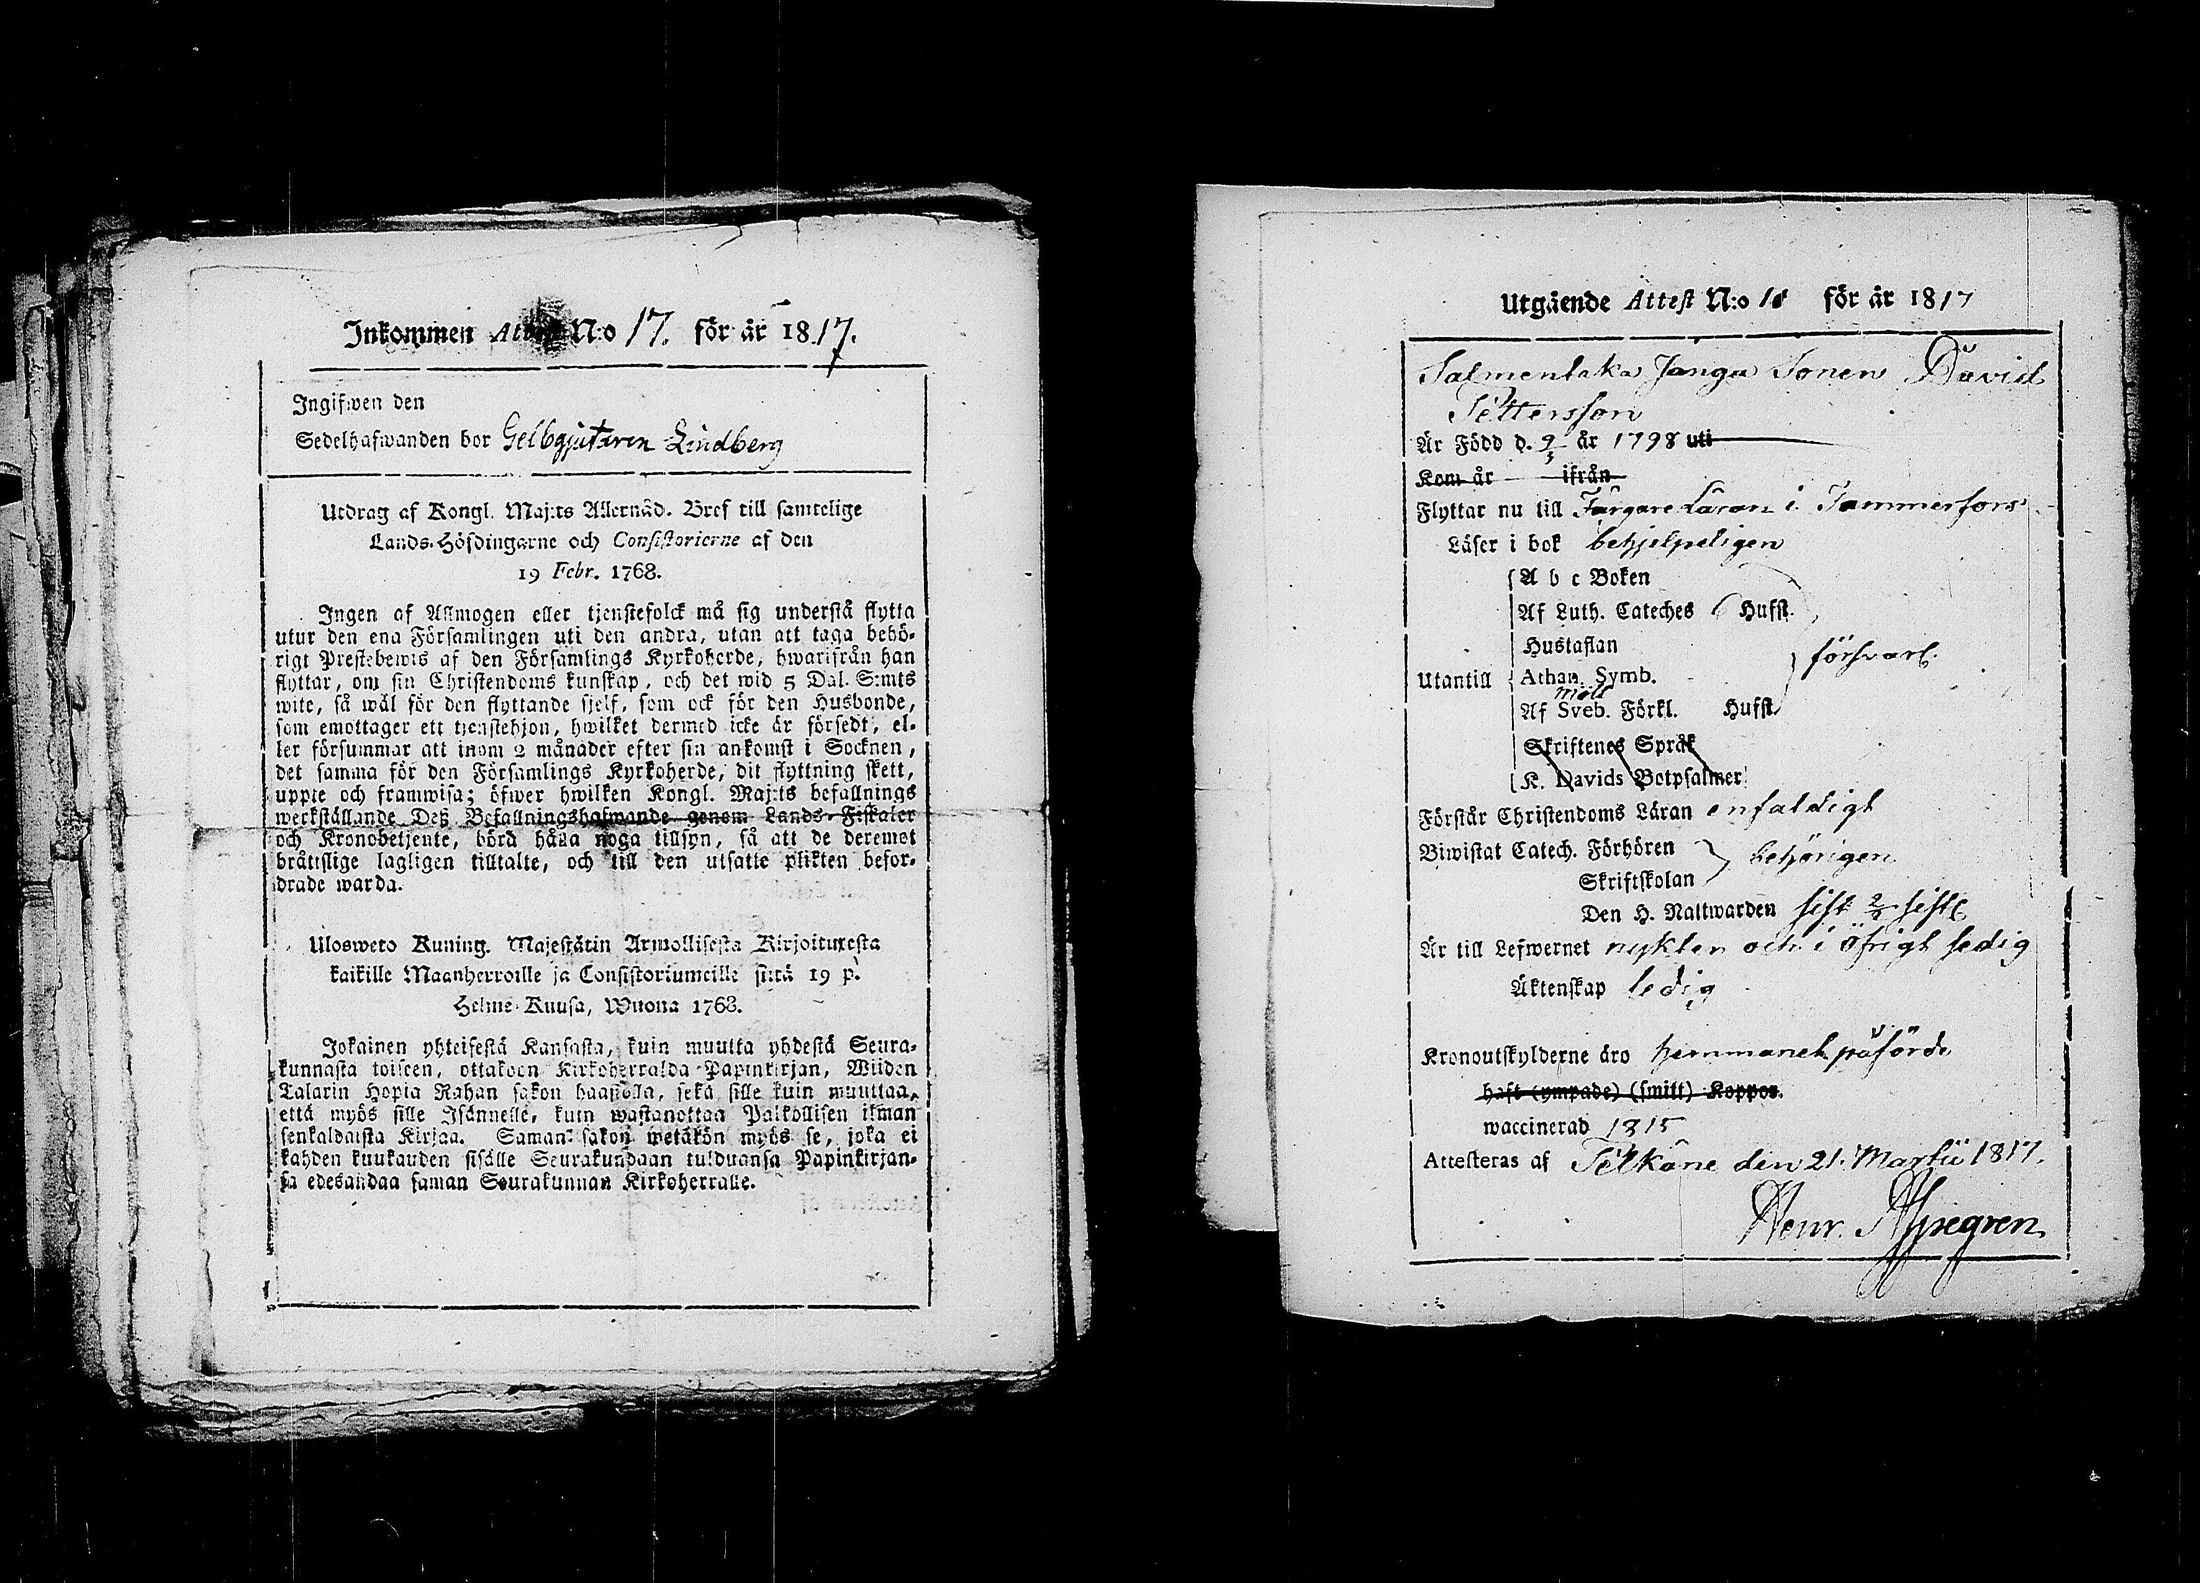 Inkommen Attest N:o 17. för år 1817.
Ingifwen den
Sedelhafwanden bor Gelbgjutaren Lindberg
Utdrag af Kongl. Maj:ts Allernåd. Bref till samtelige
Lands-Höfdingarne och Consistorierne af den
19 Febr. 1768.
Ingen af Allmogen eller tjenstefolck må sig understå flytta
utur den ena Församlingen uti den andra, utan att taga behö-
rigt Prestebewis af den Församlings Kyrkoherde, hwarifrån han
flyttar, om sin Christendoms kunskap, och det wid 5 Dal. S:mts
wite, så wäl för den flyttande sjelf, som ock för den Husbonde,
som emottager ett tjenstehjon, hwilket dermed icke är försedt, el-
ler försummar att inom 2 månader efter sin ankomst i Socknen,
det samma för den Församlings Kyrkoherde, dit flyttning skett,
uppte och framwisa; öfwer hwilken Kongl. Maj:ts befallnings
werkställande Deß Befallningshafwande genom Lands-Fiskaler
och Kronobetjente, börd hålla noga tillsyn, så att de deremot
bråttslige lagligen tilltalte, och till den utsatte plikten befor-
drade warda.
Ulosweto Kuning. Majestätin Armollisesta Kirjoituxesta
kaikille Maanherroille ja Consistoriumeille siitä 19 p.
Helme-Kuusa, Wuona 1768.
Jokainen yhteisestä Kansasta, kuin muutta yhdestä Seura-
kunnasta toiseen, ottakoon Kirkoherralda Papinkirjan, Wiiden
Talarin Hopia Rahan sakon haastolla, sekä sille kuin muuttaa,
että myös sille Isännelle, kuin wastanottaa Palkollisen ilman
senkaldaista Kirjaa. Saman sakon wetäkön myös se, joka ei
kahden kuukauden sisälle Seurakundaan tulduansa Papinkirjan-
sa edesandaa saman Seurakunnan Kirkoherralle.
Utgående Attest N:o 18 för år 1817
Salmentaka Janga Sonen David
Pettersson
Är Född d. 9/3 år 1798 uti
Kom år ifrån
Flyttar nu till Färgare Läran i Tammerfors
Läser i bok behjelpeligen
A b c Boken
Af Luth. Cateches 6 Hufst.
Hustaflan
försvarl.
Utantill Athan. Symb.
Af Sveb. Förkl. Hufst.
Skriftenes Språk
K. Davids Botpsalmer
Förstår Christendoms Läran enfaldigt
Biwistat Catech. Förhören behörigen
Skriftskolan
Den H. Nattwarden sist
Är till Lefwernet nykter och i öfrigt sedig
Äktenskap ledig
Kronoutskylderne äro hemmanet påförde
haft (ympade) (smitt) Koppor.
waccinerad 1815
Attesteras af Pelkäne den 21. Martii 1817.
Henr. Aspegren